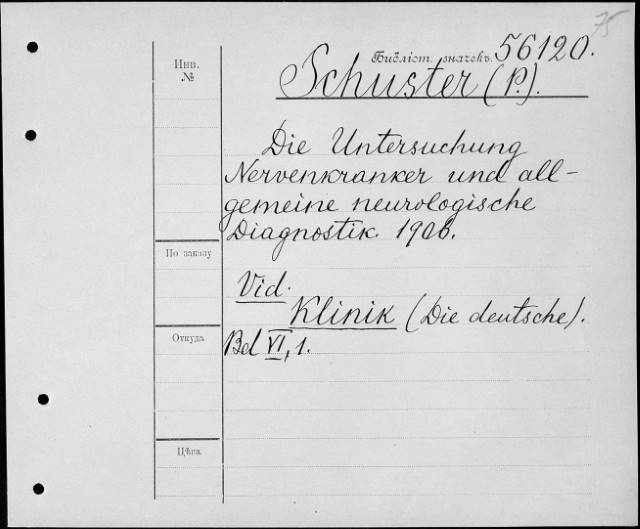 75
Библіот. значекъ. 56120.
Schuster (P.).
Инв.
№
Die Untersuchung
Nervenkranker und all-
gemeine neurologische
Diagnostik. 1906.
По заказу
Vid.
Klinik (Die deutsche).
Откуда
Bd VI, 1.
Цѣна